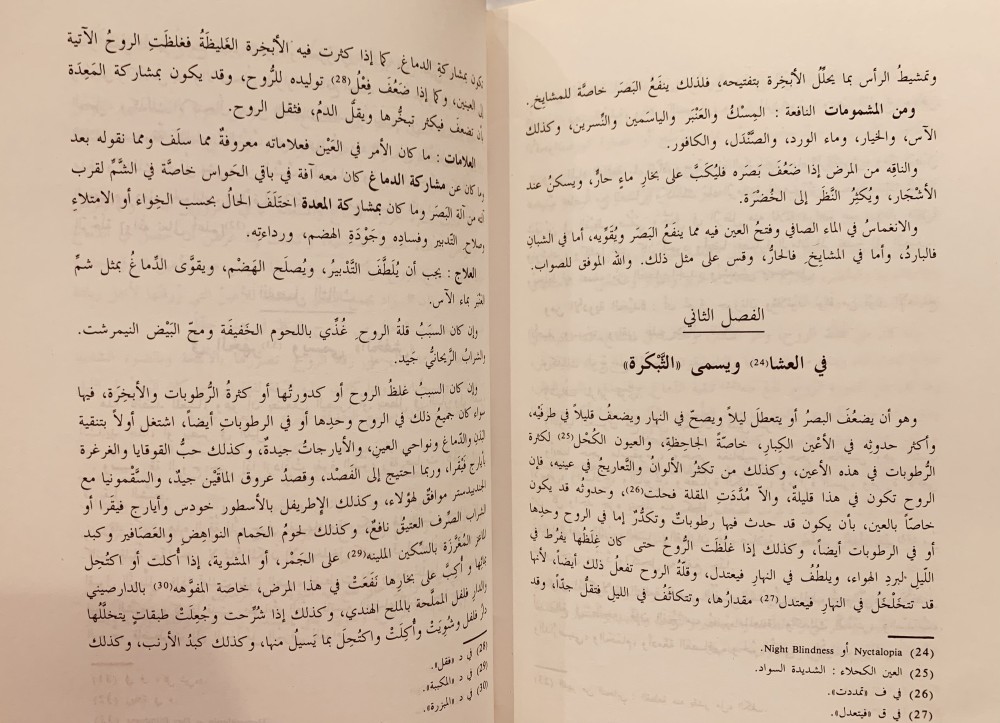 وتمشيطُ الرأس بما يحلّلُ الأبخِرة بتفتيحه، فلذلك ينفَعُ البَصَر خاصَّة للمشايِخ.
ومن المشمومات النافعة : المِسْكُ والعَنْبَر والياسَمين والنَّسرين، وكذلك
الآس، والخيار، وماء الورد، والصَّنْدَل، والكافور.
والناقِه من المرض إذا ضَعُفَ بَصَره فليُكَبَّ على بخارِ ماءٍ حارٍّ، ويسكنُ عند
الأشْجَار، ويُكثِرُ النَّظَر إلى الخُضْرَة.
والانغماسُ في الماء الصافي وفتحُ العين فيه مما ينفَعُ البَصَر ويُقَوِّيه، أما في الشبانِ
فالباردُ، وأما في المشايِخ فالحارُّ، وقس على مثل ذلك. والله الموفق للصواب.
الفصل الثاني
في العشا(24) ويسمى «الشَّبْكَرة»
وهو أن يضعُفَ البصرُ أو يتعطلَ ليلاً ويصحّ في النهار ويضعفُ قليلاً في طرفَيْه،
وأكثر حدوثِه في الأعْين الكِبار، خاصّةً الجَاحِظةِ، والعيون الكُحْل(25) لكثرة
الرُّطوبات في هذه الأعين، وكذلك من تكثُرُ الألوانُ والتَّعاريجُ في عينيه، فإن
الروح تكون في هذا قليلةٌ، والاّ مُدَّدَتِ المقلة فحلت(26)، وحدوثُه قد يكون
خاصّاً بالعين، بأن يكون قد حدث فيها رطوباتٌ وتكدُّرٌ إما في الروح وحدِها
أو في الرطوبات أيضاً، وكذلك إذا غلُظَت الرُّوحُ حتى كان غِلَظُها يفرُط في
اللّيل لبردِ الهواء، ويلطُفُ في النهارِ فيعتدل، وقلّةُ الروح تفعلُ ذلك أيضاً، لأنها
قد تتخَلْخَلُ في النهارِ فيعتدل(27) مقدارُها، وتتكاثَف في الليل فتقلُّ جدّاً، وقد
(24) Nyctalopia أو Night Blindness.
(25) العين الكحلاء : الشديدة السواد.
(26) في ف «تمددت».
(27) في ق «فيتعدل».
يكون بمشاركةِ الدماغ ِ كما إذا كثرت فيه الأبخِرة الغَليظَةُ فغلظَتِ الروحُ الآتية
إلى العينين، وكما إذا ضَعُفَ فِعْلُ(28) توليده للرُّوح، وقد يكون بمشاركة المَعِدَة
أن تضعفَ فيكثر تبخُّرها ويقلَّ الدمُ، فتقل الروح.
العلامات : ما كان الأمر في العَيْن فعلاماته معروفةٌ مما سلَف ومما نقوله بعد
وما كان عن مشاركة الدماغ كان معه آفة في باقي الحَواس خاصةً في الشَّمِّ لقرب
آلته من آلة البَصَر وما كان بمشاركة المعدة اختَلَفَ الحالُ بحسب الخِواء أو الامتلاءِ
وصلاح ِ التّدبير وفسادِه وجَوْدَةِ الهضم، ورداءتِه.
العلاج : يجب أن يُلَطَّفَ التَّدْبيرُ، ويُصلَح الهَضْم، ويقوَّى الدِّماغُ بمثل شمِّ
العنْبر بماء الآس.
وإن كان السبَبُ قلةُ الروح ِ غُذِّي باللحوم الخَفيفَة ومحّ البَيْض النيمرشت.
والشرابُ الرَّيحانيُّ جَيد.
وإن كان السببُ غلظُ الروح أو كدورتُها أو كثرةُ الرُّطوبات والأبخِرَة، فيها
سواء كان جميعُ ذلك في الروح وحدِها أو في الرطوباتِ أيضاً، اشتغل أولاً بتنقية
البدنِ والدِّماغ ونواحي العينِ، والأيارجاتُ جيدةٌ، وكذلك حبُّ القوقايا والغرغرة
بأيارج فَيْقَرا، وربما احتيج إلى الفَصْد، وفصدُ عروق الماقَيْن جيدٌ، والسقْمونيا مع
الجندبيدستر موافقٌ لهؤلاء، وكذلك الإطريفل بالأسطور خودس وأيارج فيقرا أو
الشراب الصِّرف العتيقُ نافعٌ، وكذلك لحومُ الحَمام النواهِضِ والعَصَافير وكبد
المُغَرَّزة بالسِّكين الملينه(29) على الجَمْر، أو المشوية، إذا أُكلت أو اكتُحِل
بمائها وأُكِبَّ على بخارِها نَفَعَتْ في هذا المرض، خاصة المفوَّهه(30) بالدارصيني
والدار فلفل المملَّحة بالملح الهندي، وكذلك إذا شُرِّحت وجُعِلَتْ طبقاتٍ يتخلَّلُها
دار فلفل وشُوِيَتْ وأُكِلَتْ واكتُحِلَ بما يَسيلُ منها، وكذلك كبدُ الأرنب، وكذلك
(28) في د «فقل».
(29) في د «المكببة».
(30) في د «المبزرة».